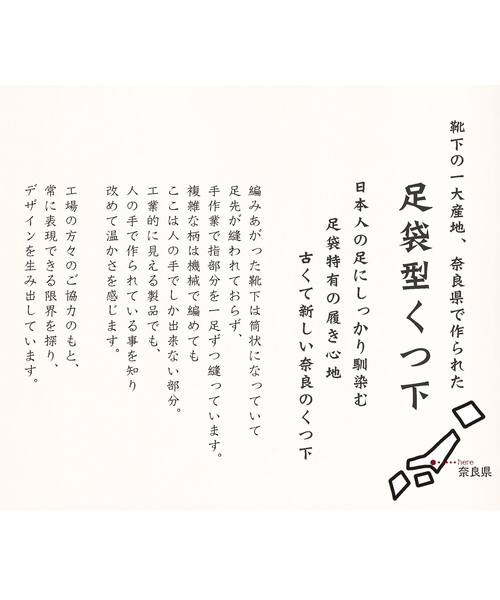 靴下の一大産地、奈良県で作られた
足袋型くつ下
日本人の足にしっかり馴染む
足袋特有の履き心地
古くて新しい奈良のくつ下
編みあがった靴下は筒状になっていて
足先が縫われておらず、
手作業で指部分を一足ずつ縫っています。
複雑な柄は機械で編めても
ここは人の手でしか出来ない部分。
工業的に見える製品でも、
人の手で作られている事を知り
改めて温かさを感じます。
工場の方々のご協力のもと、
常に表現できる限界を探り、
デザインを生み出しています。
here
奈良県